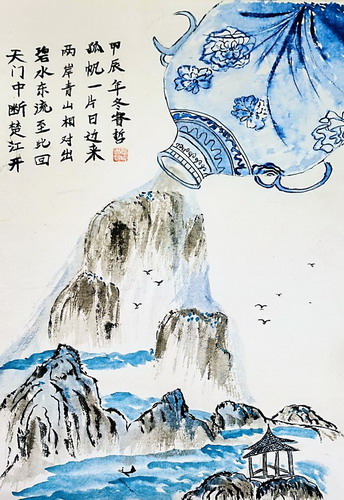 天门中断楚江开
碧水东流至此回
两岸青山相对出
孤帆一片日边来
甲辰年冬睿哲